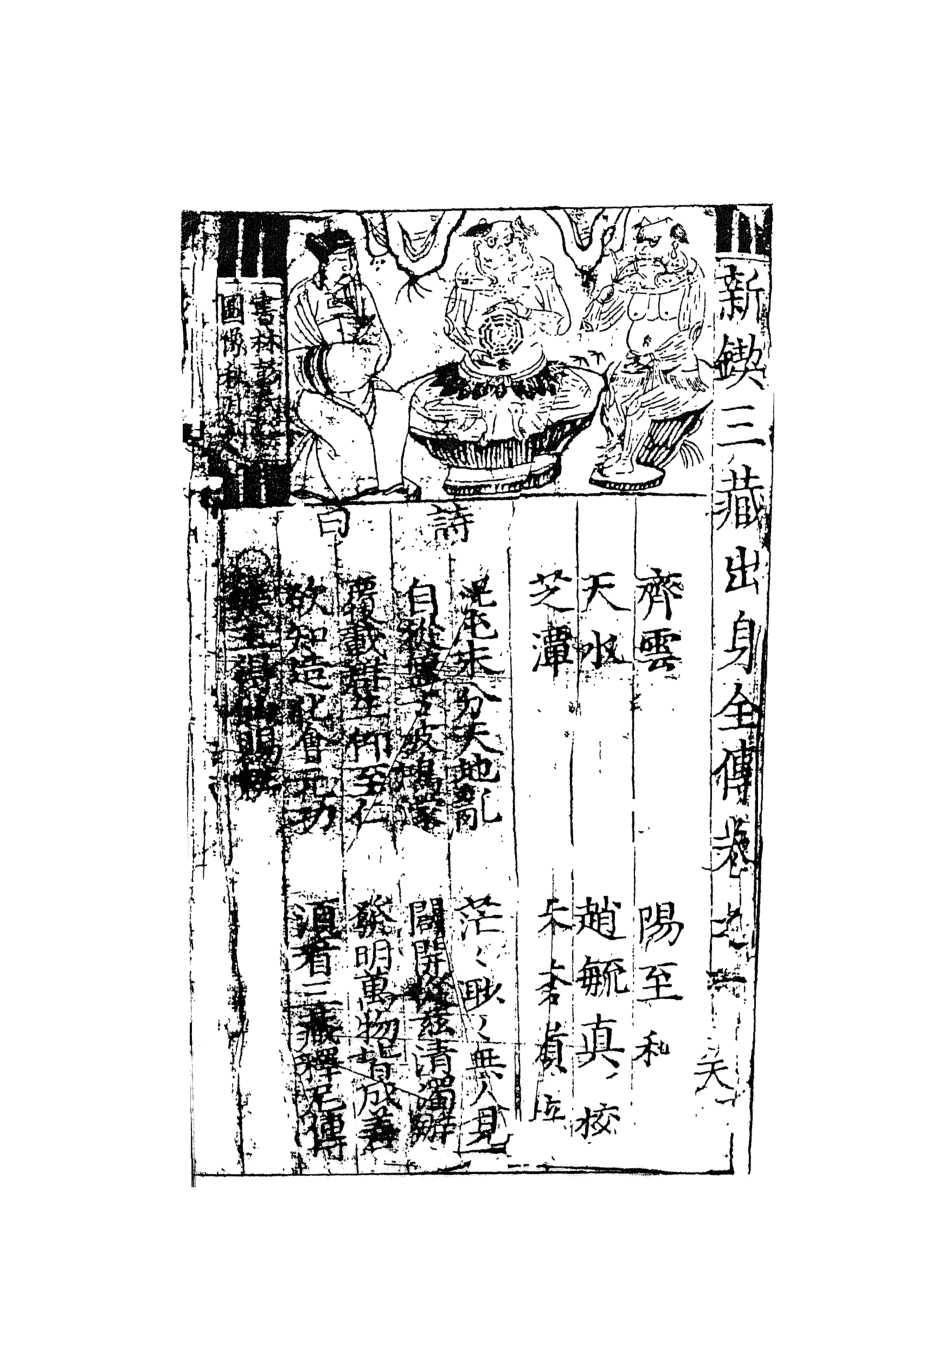 新鍥三藏出身全傳卷之一 天
齊雲 陽至和
天水 趙毓真 校
芝潭 朱蒼 
詩
混沌未分天地亂 茫〻眇〻無人見
自從盤古破鴻濛 開闢從兹清濁辨
曰
覆載群生仰至仁 發明萬物皆成善
欲知造化會元功 須看三藏釋厄傳
猴王得仙賜姓
書林
圖像